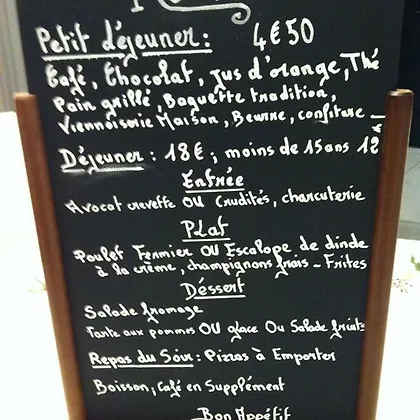 Petit déjeuner : 4€50
Café, Chocolat, jus d'orange, Thé
Pain grillé, Baguette tradition,
Viennoiserie Maison, Beurre, confiture
Déjeuner : 18€ ; moins de 15 ans 12€
Entrée
Avocat crevette OU Crudités, charcuterie
Plat
Poulet Fermier OU Escalope de dinde
à la crème, champignons frais - Frites
Déssert
Salade fromage
Tarte aux pommes OU glace OU Salade fruits
Repas du Soir : Pizzas à Emporter
Boisson, Café en Supplément
Bon Appétit